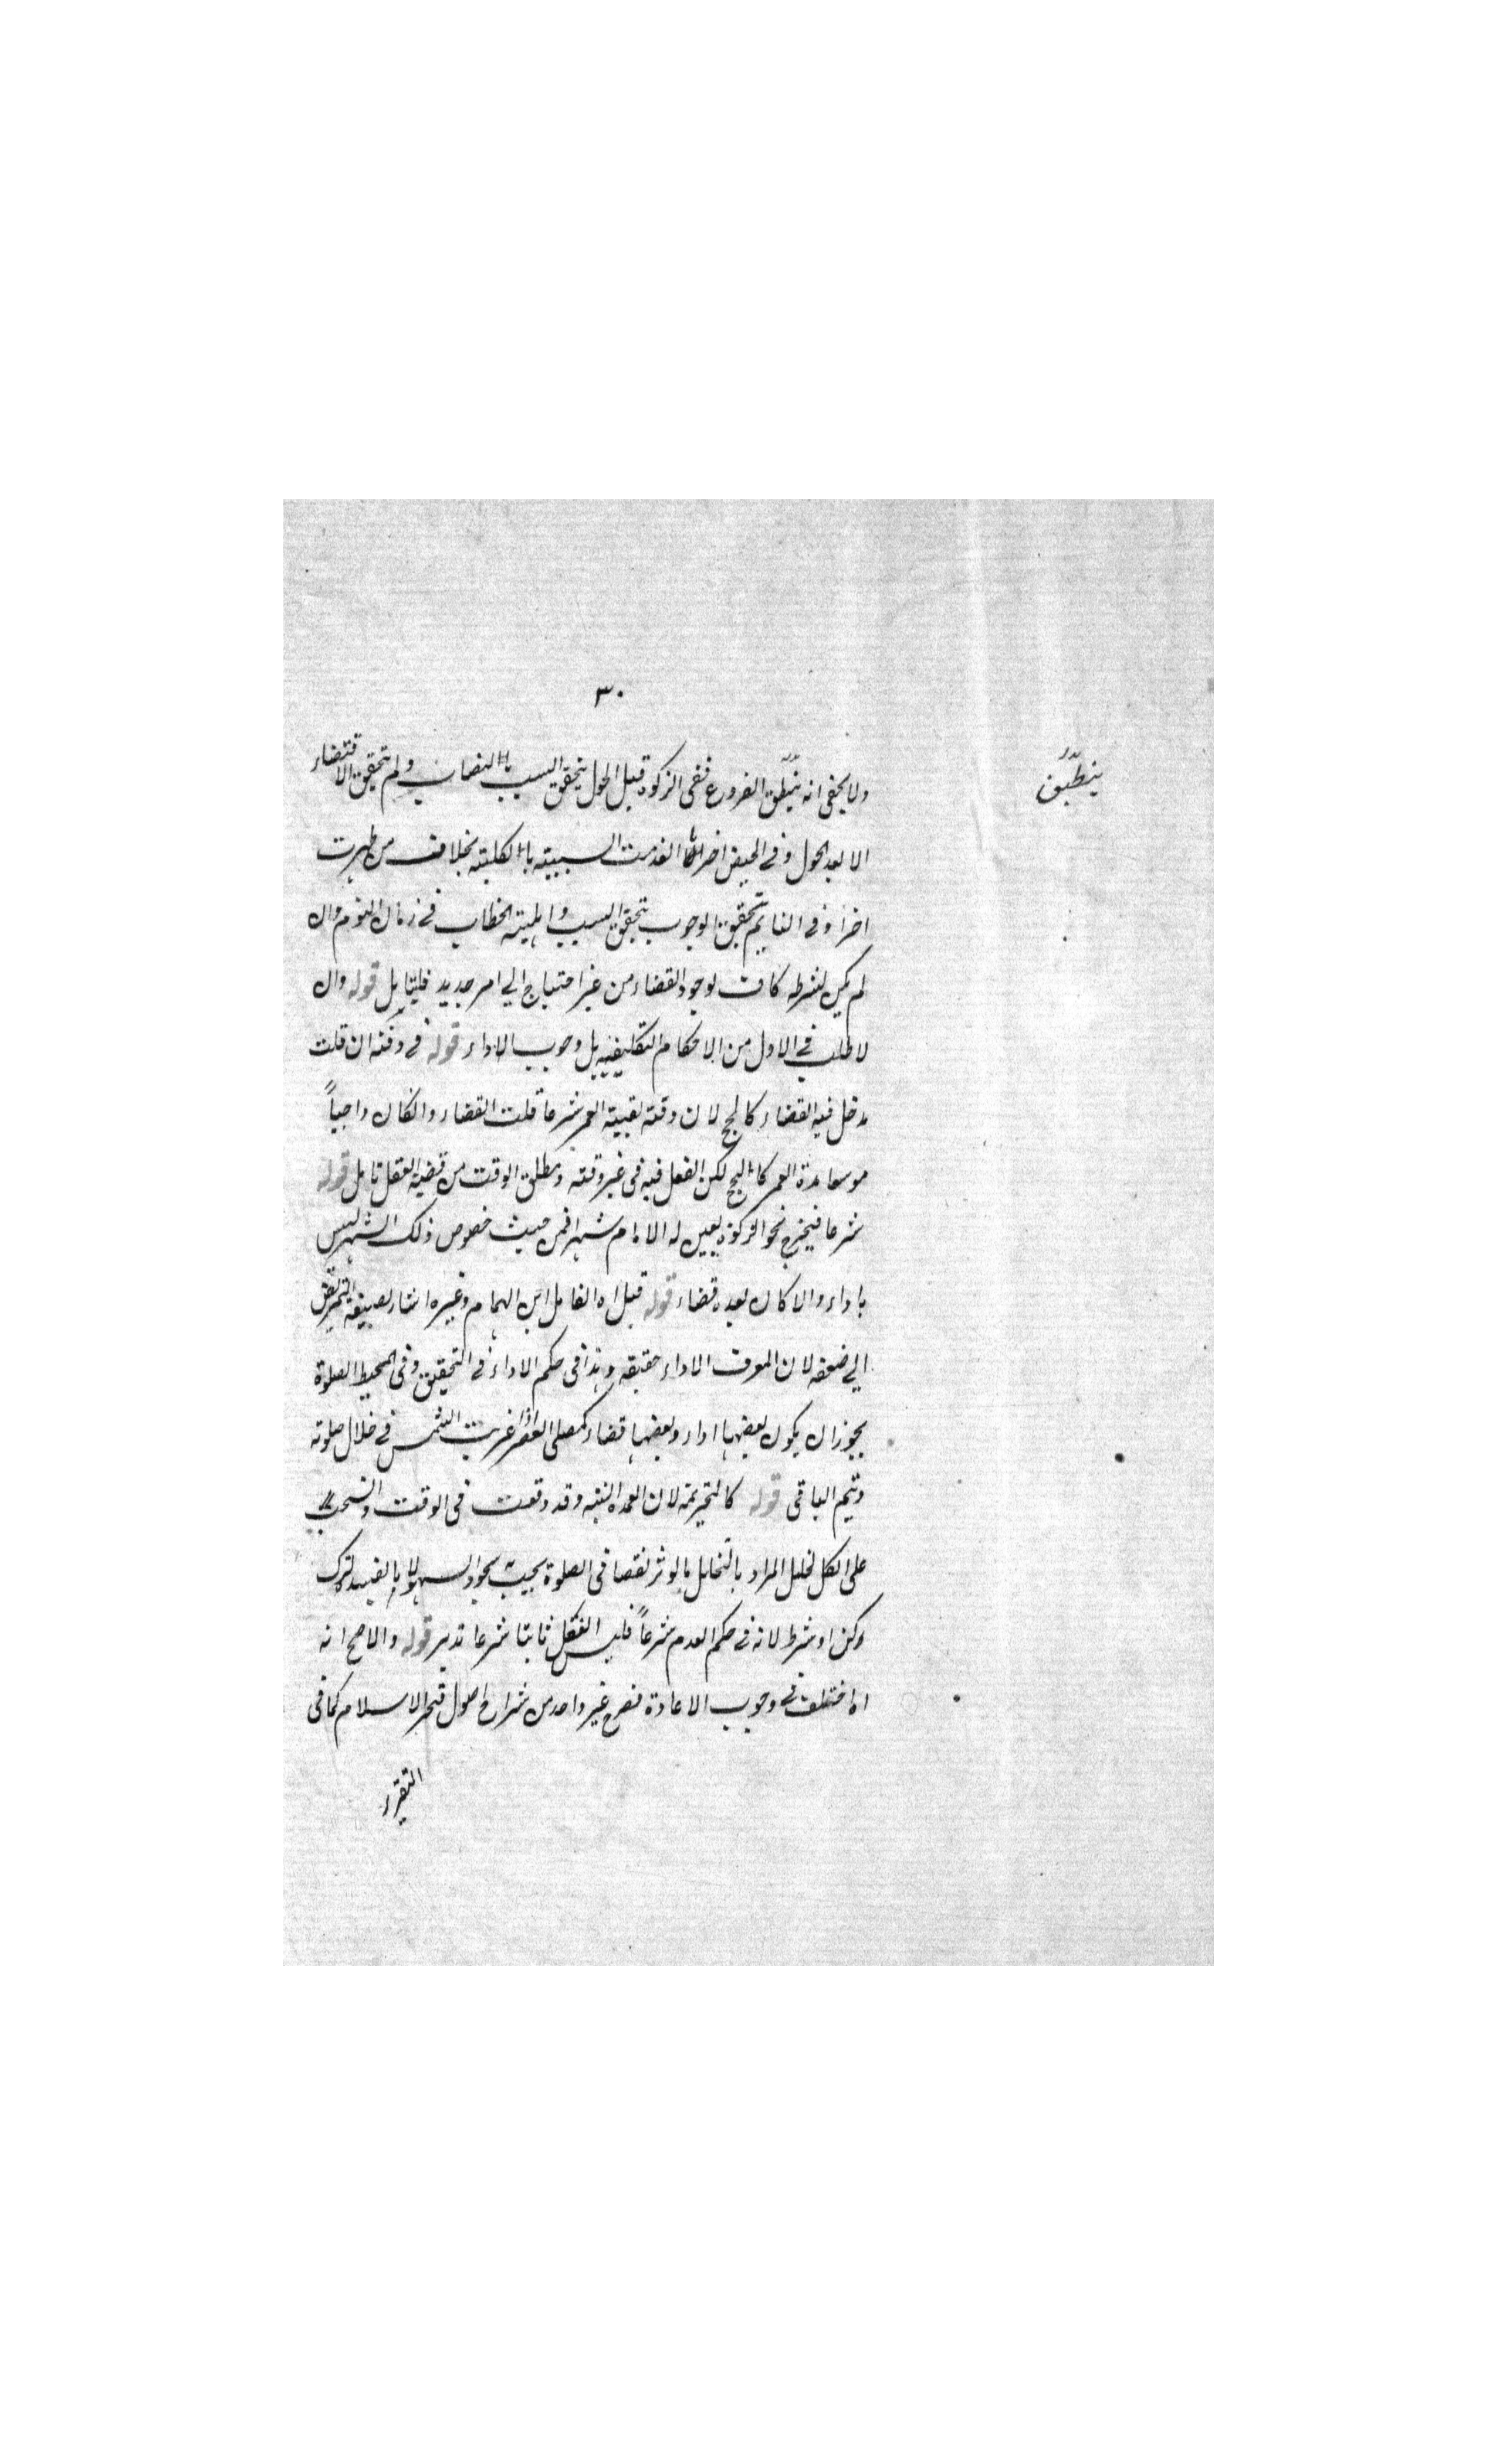 ٣٠
ولا يخفى انه ينطبق الفروع ففى الزكوة قبل الحول يتحقق السبب بالنصاب ولم يتحقق الاقتضاء
ينطبق
الا بعد الحول وفى الحيض انعدمت السببية بالكلية بخلاف من طهرت
اخرا وفى النايم تحقق الوجوب بتحقق السبب واهلية الخطاب فى زمان النوم وان
لم يكن لشرطه كاف لوجود القضاء من غير احتياج الي امر جديد فليتامل قوله وان
لا طلب فى الاول من الاحكام التكليفيه بل وجوب الاداء قوله فى وقته ان قلت
دخل فيه القضاء كالحج لان وقته بقية العمر شرعا قلت القضاء وانكان واجباً
موسعا مدة العمر كالحج لكن الفعل فيه فى غير وقته ومطلق الوقت من قضية العقل تامل قوله
شرعا فيخرج نحو الزكوة يعين له الامام شهرا فمن حيث خصوص ذلك الشهر ليس
باداء والا كان بعده قضاء قوله قيل اه القايل ابن الهمام وغيره اشار بصيغة التمريض
الي ضعفه لان المعرف الاداء حقيقه وهذا فى حكم الاداء فى التحقيق وفى المحيط الصلوة
يجوز ان يكون بعضها اداء وبعضها قضاء كمصلى العصر اذا غربت الشمس فى خلال صلوته
وتيم الباقى قوله كالتحريمة لان العمده النيه وقد وقعت فى الوقت وانسحب
على الكل لخلل المراد بالخلل ما يوثر نقصا فى الصلوة يجب بجود السهو لا ما يفسد لترك
ركن او شرط لانه فى حكم العدم شرعاً فليس الفعل ثابتا شرعا تدبر قوله والاصح انه
اه اختلف فى وجوب الاعادة فصرح غير واحد من شراح اصول فخر الاسلام كما فى
التقرير